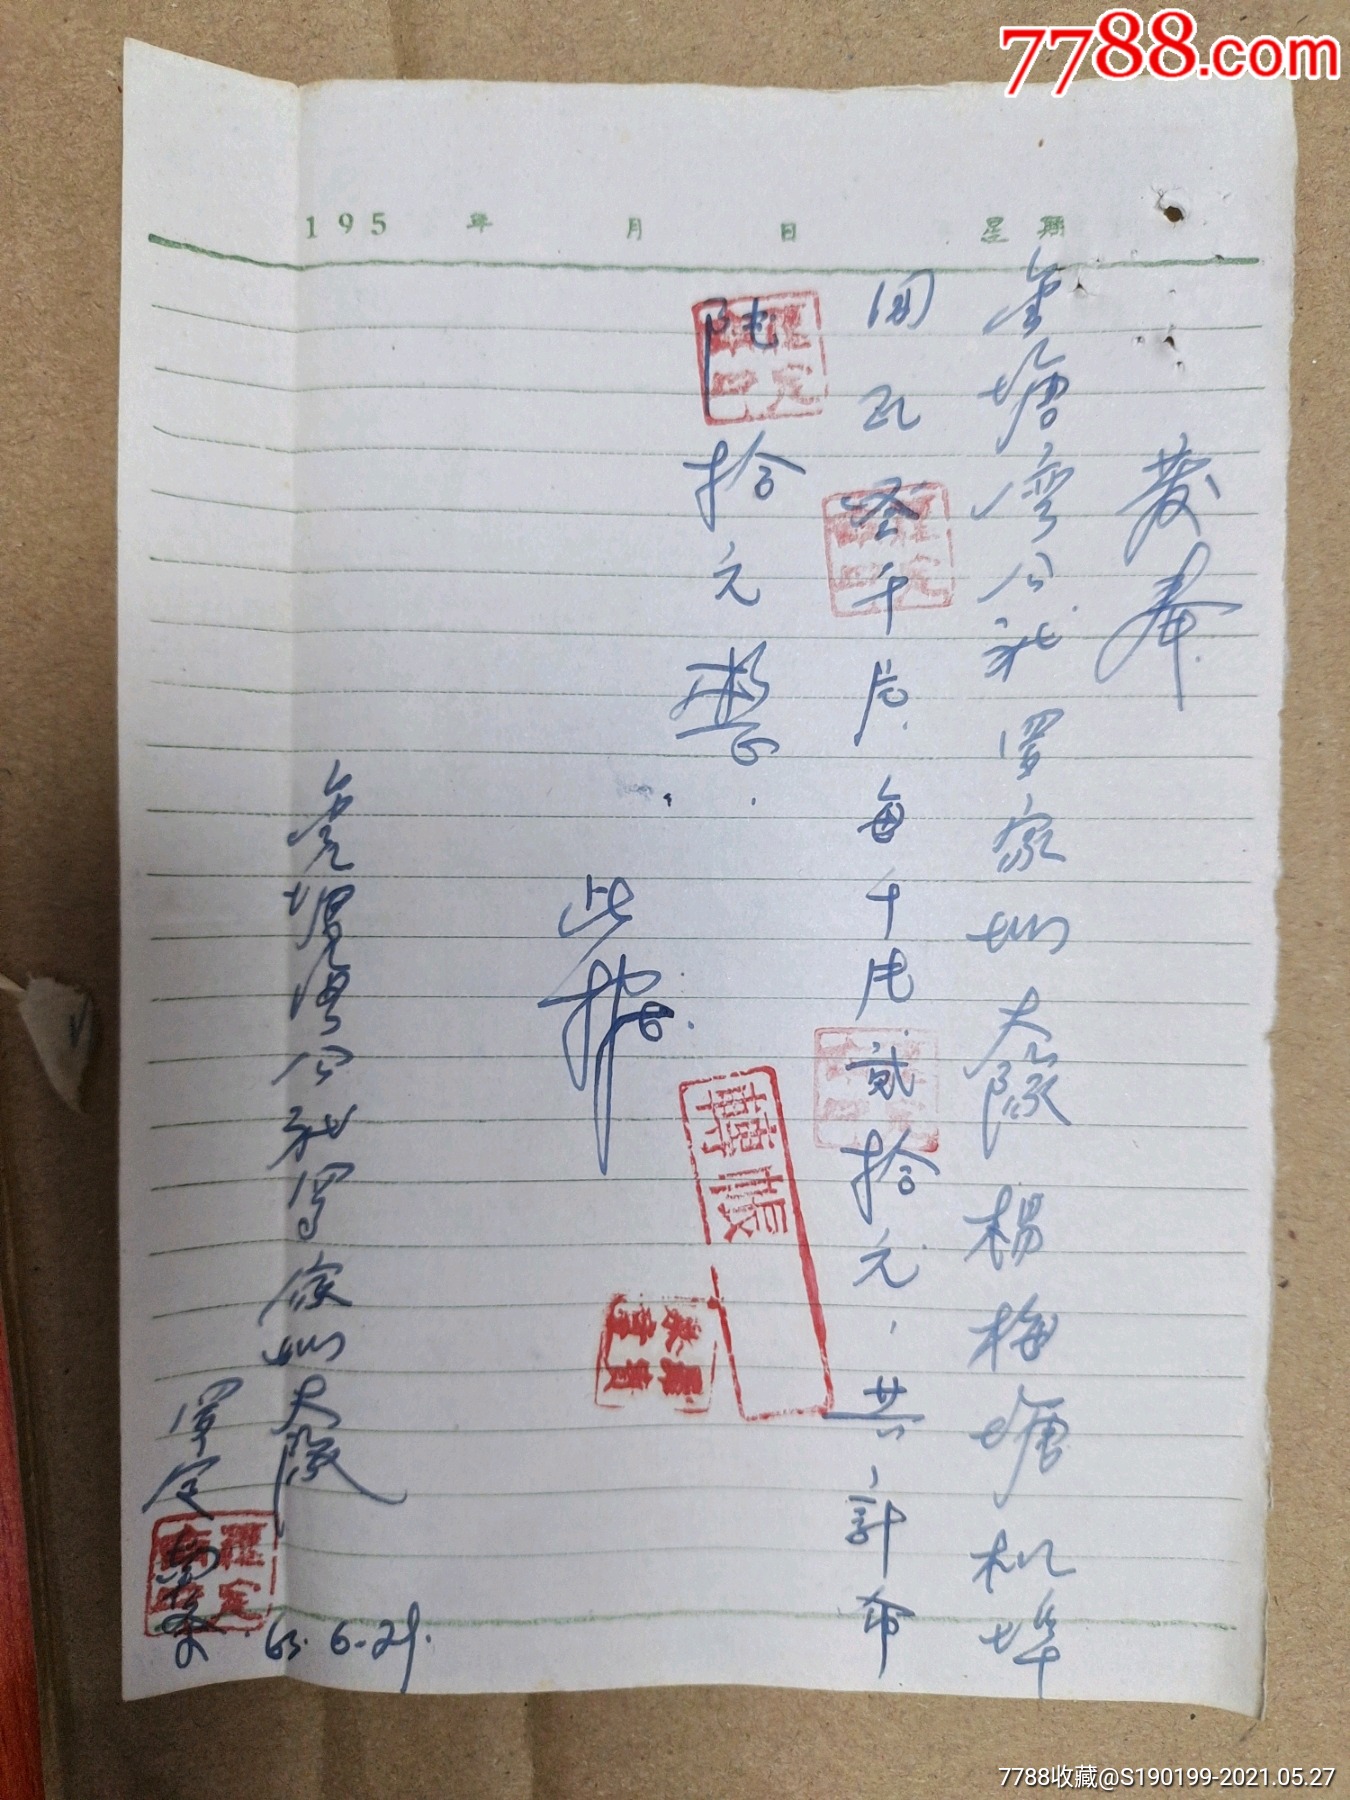 7788.com
195 年 月 日 星期
塘湾公社罗家圳大队杨梅塘机埠
瓦叁千片每千片贰拾元,共計币
陆拾元整
此据
轉帳
湾公社罗家圳大队
罗定
63.6-29.
7788收藏@S190199-2021.05.27